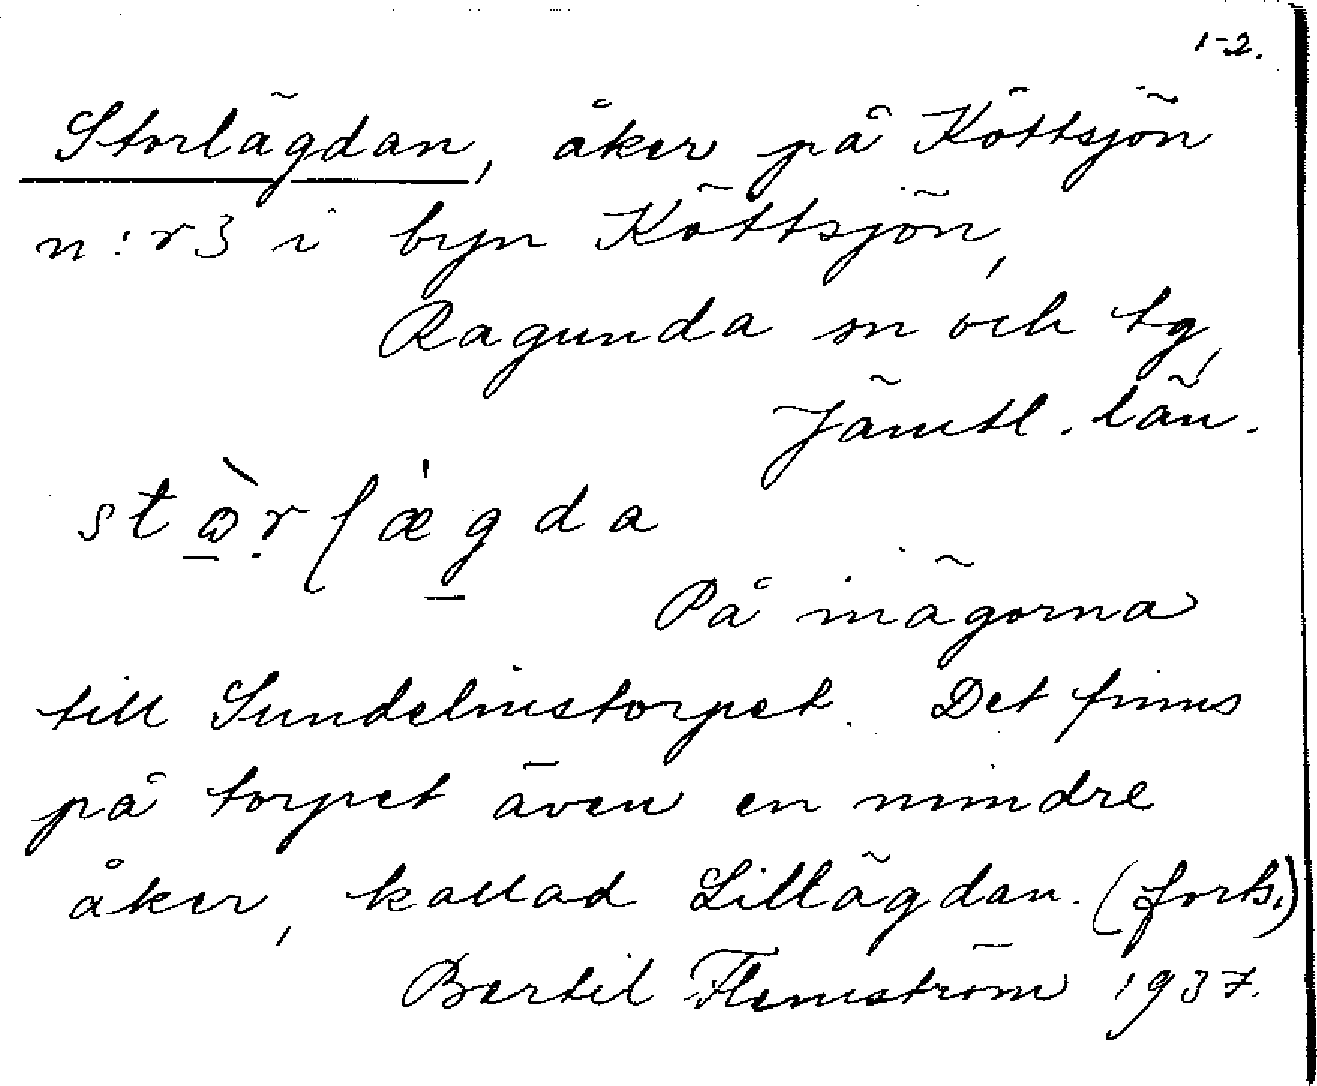 1-2.
Storlägdan, åker på Köttsjön
n:r 3 i byn Köttsjön,
Ragunda sn och tg,
Jämtl. län.
På inägorna
till Sundelinstorpet. Det finns
på torpet även en mindre
åker, kallad Lillägdan. (forts.)
Bertil Flemström 1937.